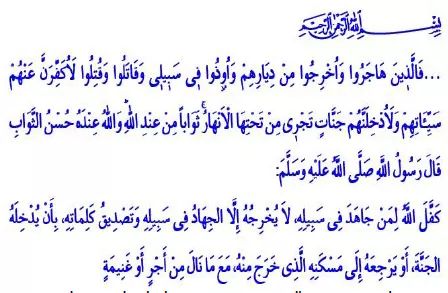 بِسْمِ اللّٰهِ الرَّحْمٰنِ الرَّحِيمِ
...فَالَّذِينَ هَاجَرُوا وَاُخْرِجُوا مِنْ دِيَارِهِمْ وَاُوذُوا فِى سَبِيلِى وَقَاتَلُوا وَقُتِلُوا لَاُكَفِّرَنَّ عَنْهُمْ
سَيِّـَٔاتِهِمْ وَلَاُدْخِلَنَّهُمْ جَنَّاتٍ تَجْرِى مِنْ تَحْتِهَا الْاَنْهَارُۚ ثَوَاباً مِنْ عِنْدِ اللّٰهِۜ وَاللّٰهُ عِنْدَهُ حُسْنُ الثَّوَابِ
قَالَ رَسُولُ اللَّهِ صَلَّى اللَّهُ عَلَيْهِ وَسَلَّمَ:
كَفَّلَ اللَّهُ لِمَنْ جَاهَدَ فِى سَبِيلِهِ، لَا يُخْرِجُهُ إِلَّا الْجِهَادُ فِى سَبِيلِهِ وَتَصْدِيقُ كَلِمَاتِهِ، بِأَنْ يُدْخِلَهُ
الْجَنَّةَ، أَوْ يَرْجِعَهُ إِلَى مَسْكَنِهِ الَّذِى خَرَجَ مِنْهُ، مَعَ مَا نَالَ مِنْ أَجْرٍ أَوْ غَنِيمَةٍ